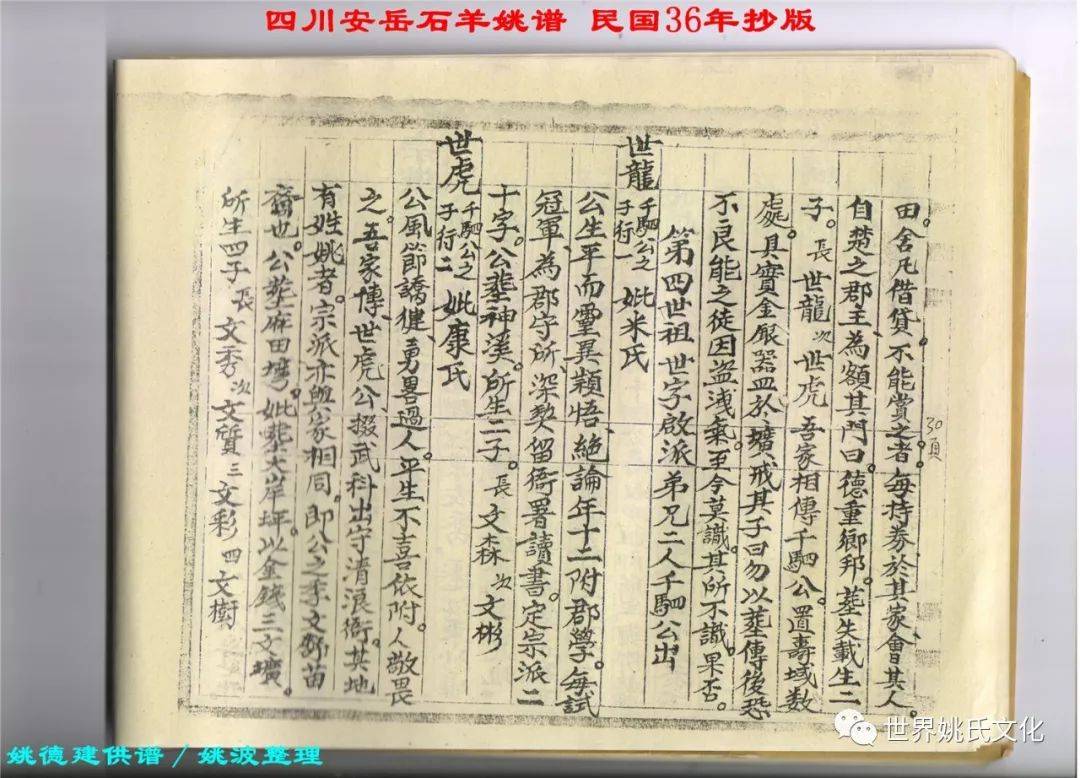 四川安岳石羊姚谱 民国36年抄版
田。舍凡借貸。不能賞之者。每持券於其家會其人。
自楚之郡主、為額其門曰。德重鄉邦。塟失載生二
子。長世龍次世虎 吾家相傳千駟公。置壽域数
處。具實金銀器皿於壙、戒其子曰勿以塟傳後恐
不良能之徒因盜洩氣。至今莫識。其所不識。果否。
第四世祖世字啟派弟兄二人千駟公出
世龍千駟公之子行一妣米氏
公生平而靈異穎悟、絶論年十二附郡學。每試
冠軍、為郡守所、深契留衙署讀書。定宗派二
十字。公塟神溪。所生二子。長文森次文彬
世虎千駟公之子行二妣康氏
公風節譑健、勇畧過人。平生不喜依附。人敬畏
之。吾家傳、世虎公、掇武科出守清浪衙。其地
有姓姚者。宗派亦與家相同。即公之季文苗
裔也。公塟麻田塆。妣塟大岸坪。以金錢三文壙。
所生四子長文秀次文質三文彩四文樹
30頁
世界姚氏文化
姚德建供谱／姚波整理